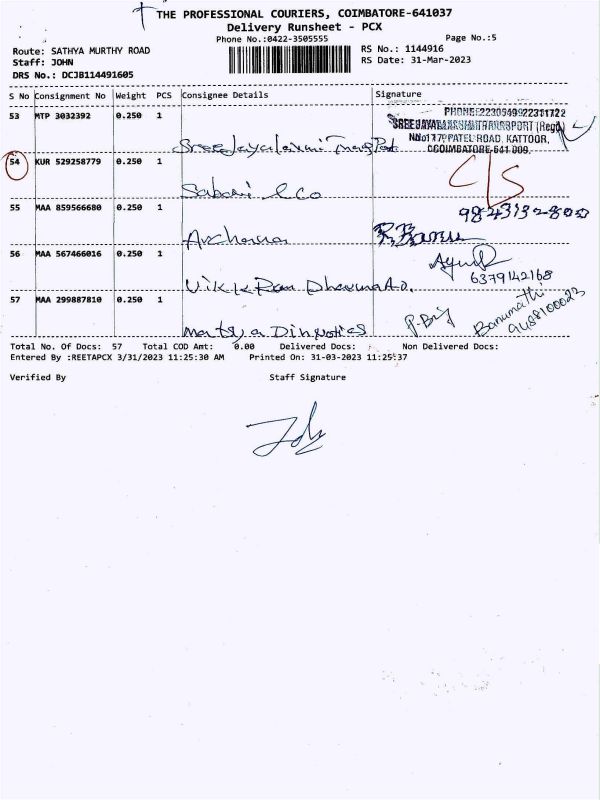 THE PROFESSIONAL COURIERS, COIMBATORE-641037
Delivery Runsheet - PCX
Phone No.:0422-3505555
Page No.:5
Route: SATHYA MURTHY ROAD
RS No.: 1144916
Staff: JOHN
RS Date: 31-Mar-2023
DRS No.: DCJB114491605
S No Consignment No Weight PCS Consignee Details Signature
53 MTP 3032392 0.250 1
SREE JAYALAKSHMI TRANSPORT (Regd)
No.177, PATEL ROAD, KATTOOR,
COIMBATORE-641 009.
Sree Jayalaxmi
54 KUR 529258779 0.250 1
C/S
Sabari & Co
55 MAA 859566680 0.250 1
Archana
R. Banu
56 MAA 567466016 0.250 1
6379142168
Vikk Ram
57 MAA 299887810 0.250 1
Banumathi
9488100023
Matsya
Total No. Of Docs: 57 Total COD Amt: 0.00 Delivered Docs: Non Delivered Docs:
Entered By :REETAPCX 3/31/2023 11:25:30 AM Printed On: 31-03-2023 11:25:37
Verified By Staff Signature